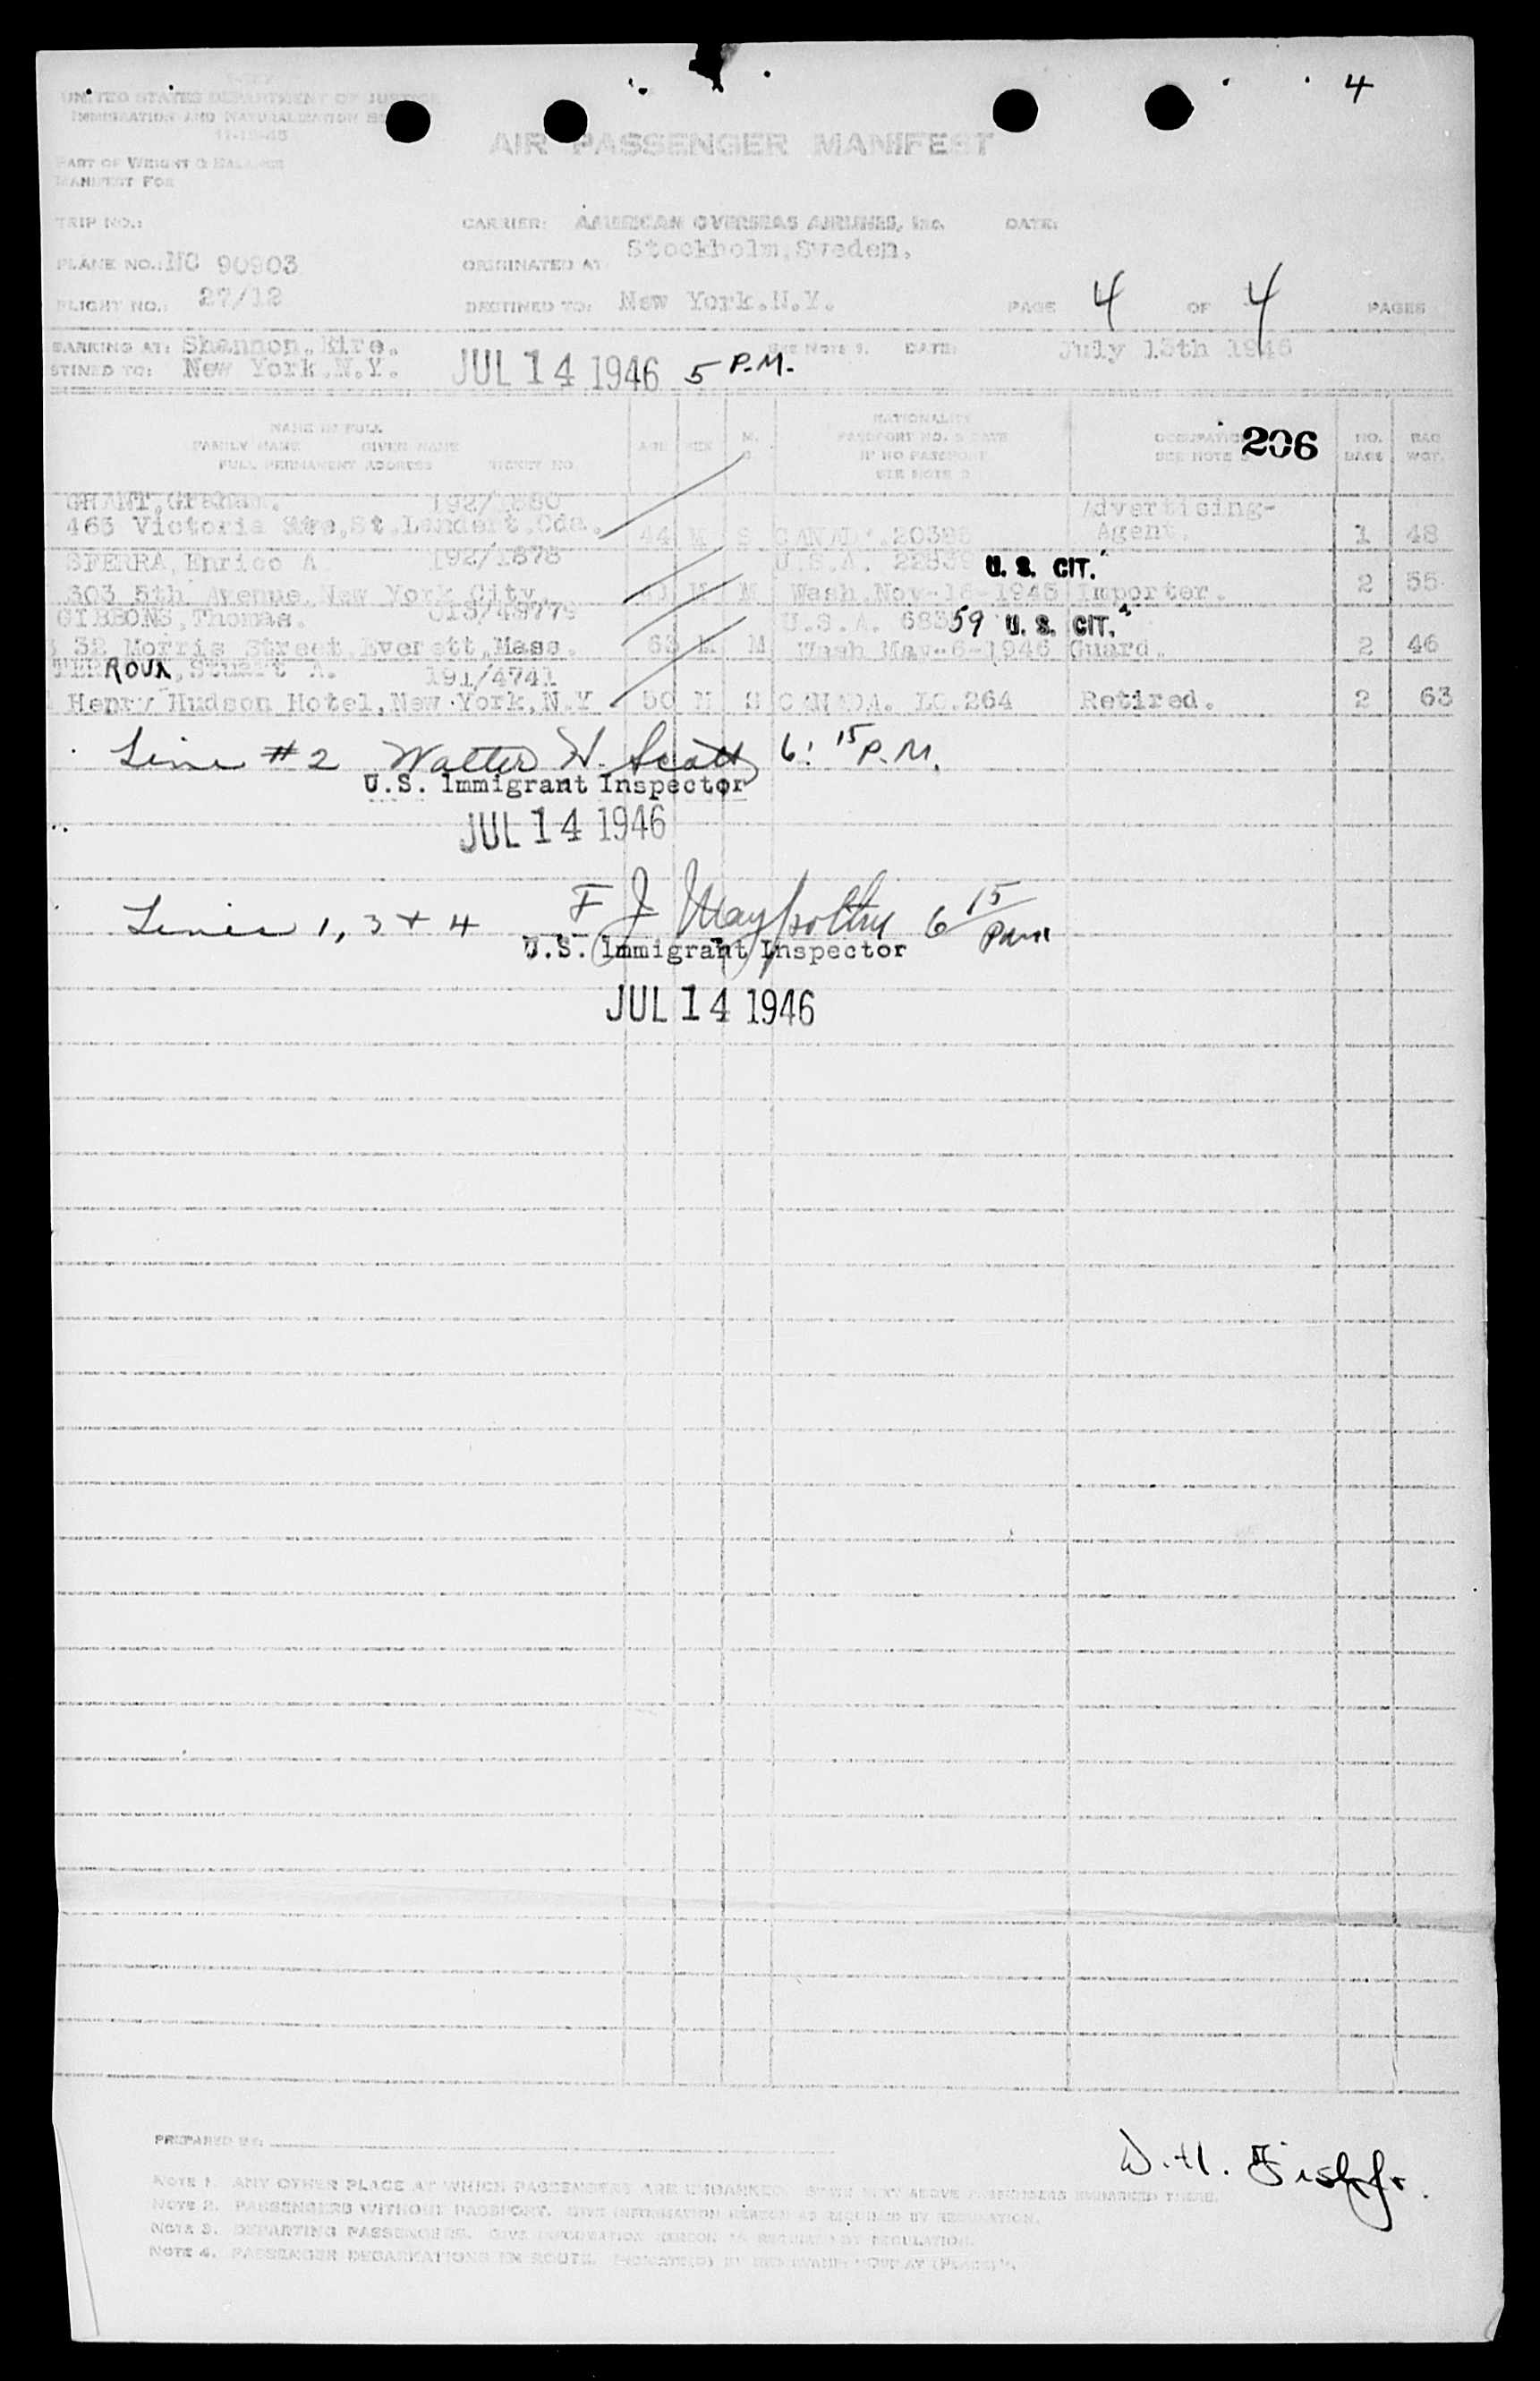 4
UNITED STATES DEPARTMENT OF JUSTICE
IMMIGRATION AND NATURALIZATION
11-15-45
AIR PASSENGER MANIFEST
PART OF WEIGHT & BALANCE
MANIFEST FOR
TRIP NO.: CARRIER: AMERICAN OVERSEAS AIRLINES, INC. DATE:
PLANE NO.: NC 90903 ORIGINATED AT Stockholm, Sweden.
FLIGHT NO.: 27/12 DESTINED TO: New York.N.Y. PAGE 4 OF 4 PAGES
BARKING AT: Shannon. Eire. SEE NOTE 1. DATE: July 13th 1946
STINED TO: New York.N.Y. JUL 14 1946 5 P.M.
NAME IN FULL
FAMILY NAME GIVEN NAME
FULL PERMANENT ADDRESS TICKET NO
AGE SEX M. S
NATIONALITY
PASSPORT NO. & DATE
IF NO PASSPORT
SEE NOTE 2
OCCUPATION
SEE NOTE 3
206
NO. BAGS
BAG WGT.
GRANT, Graham. 192/1880 Advertising-
465 Victoria Ave, St. Lambert, Cda. 44 M S CANADA. Agent. 1 48
SFERRA, Enrico A 192/1878 U.S.A. U. S. CIT.
303 5th Avenue, New York City. M M Wash. Nov-16-1945 Importer. 2 55
GIBBONS, Thomas. 018/49779 U.S.A. 68359 U. S. CIT.
32 Morris Street, Everett, Mass. 63 M M Wash May-6-1946 Guard. 2 46
ROUX, Stuart A. 191/4741
Henry Hudson Hotel, New York, N.Y 50 M S CANADA. LO.264 Retired. 2 63
Line #2 Walter H. Scott 6:15 P.M.
U.S. Immigrant Inspector
JUL 14 1946
Lines 1, 3 + 4 F J 6 15 pm
U.S. Immigrant Inspector
JUL 14 1946
PREPARED BY:
W.H.
NOTE 1. ANY OTHER PLACE AT WHICH PASSENGERS ARE EMBARKED. ABOVE PASSENGERS EMBARKED THERE.
NOTE 2. PASSENGERS WITHOUT PASSPORT. GIVE INFORMATION HEREON AS REQUIRED BY REGULATION.
NOTE 3. DEPARTING PASSENGERS. GIVE INFORMATION HEREON AS REQUIRED BY REGULATION.
NOTE 4. PASSENGER DEBARKATIONS EN ROUTE.